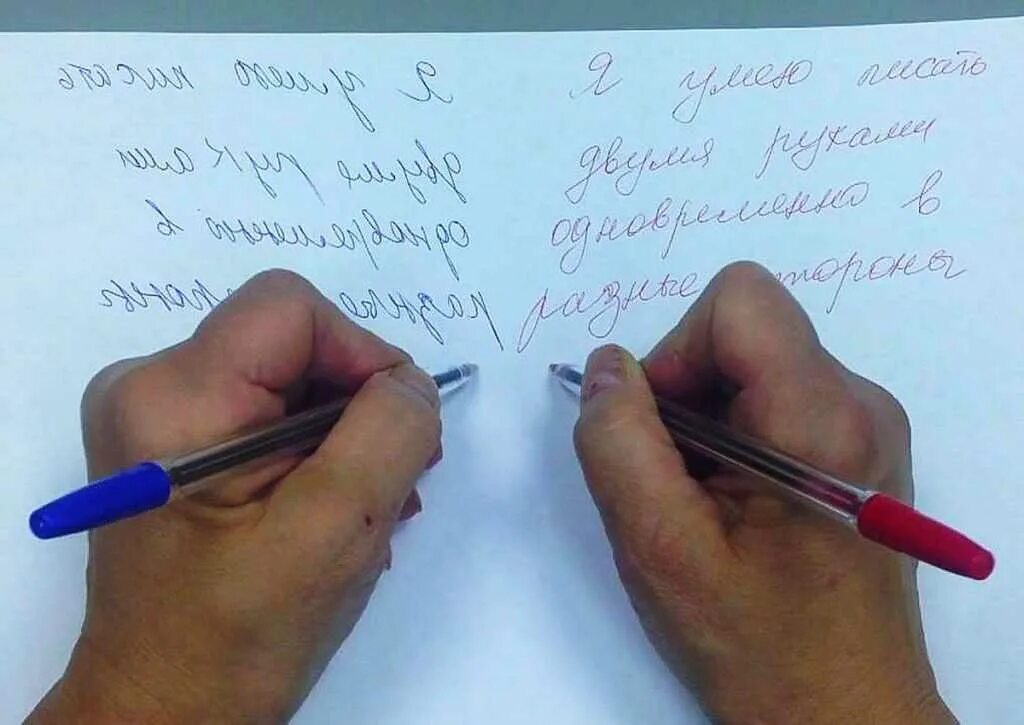 Я умею писать
двумя руками
одновременно в
разные роны
Я умею писать
двумя руками
одновременно в
разные тороны